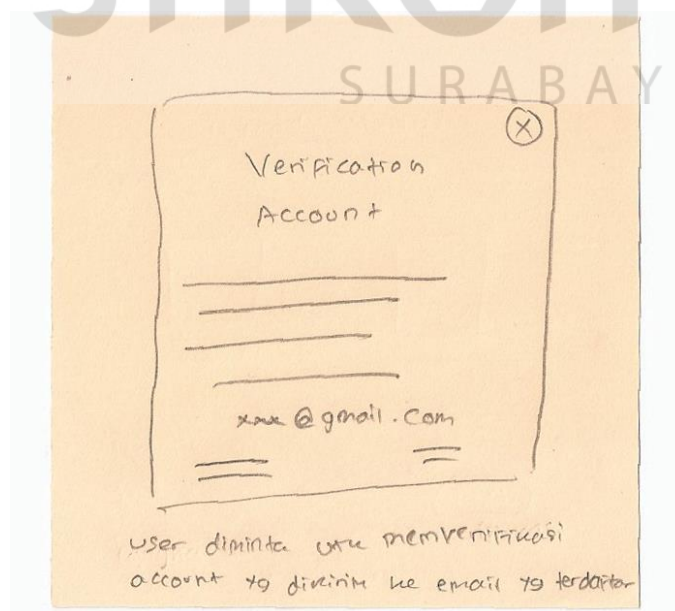 SURABAY
X
Verification
Account
xxx@gmail.com
user diminta utk memverifikasi
account yg dikirim ke email yg terdaftar